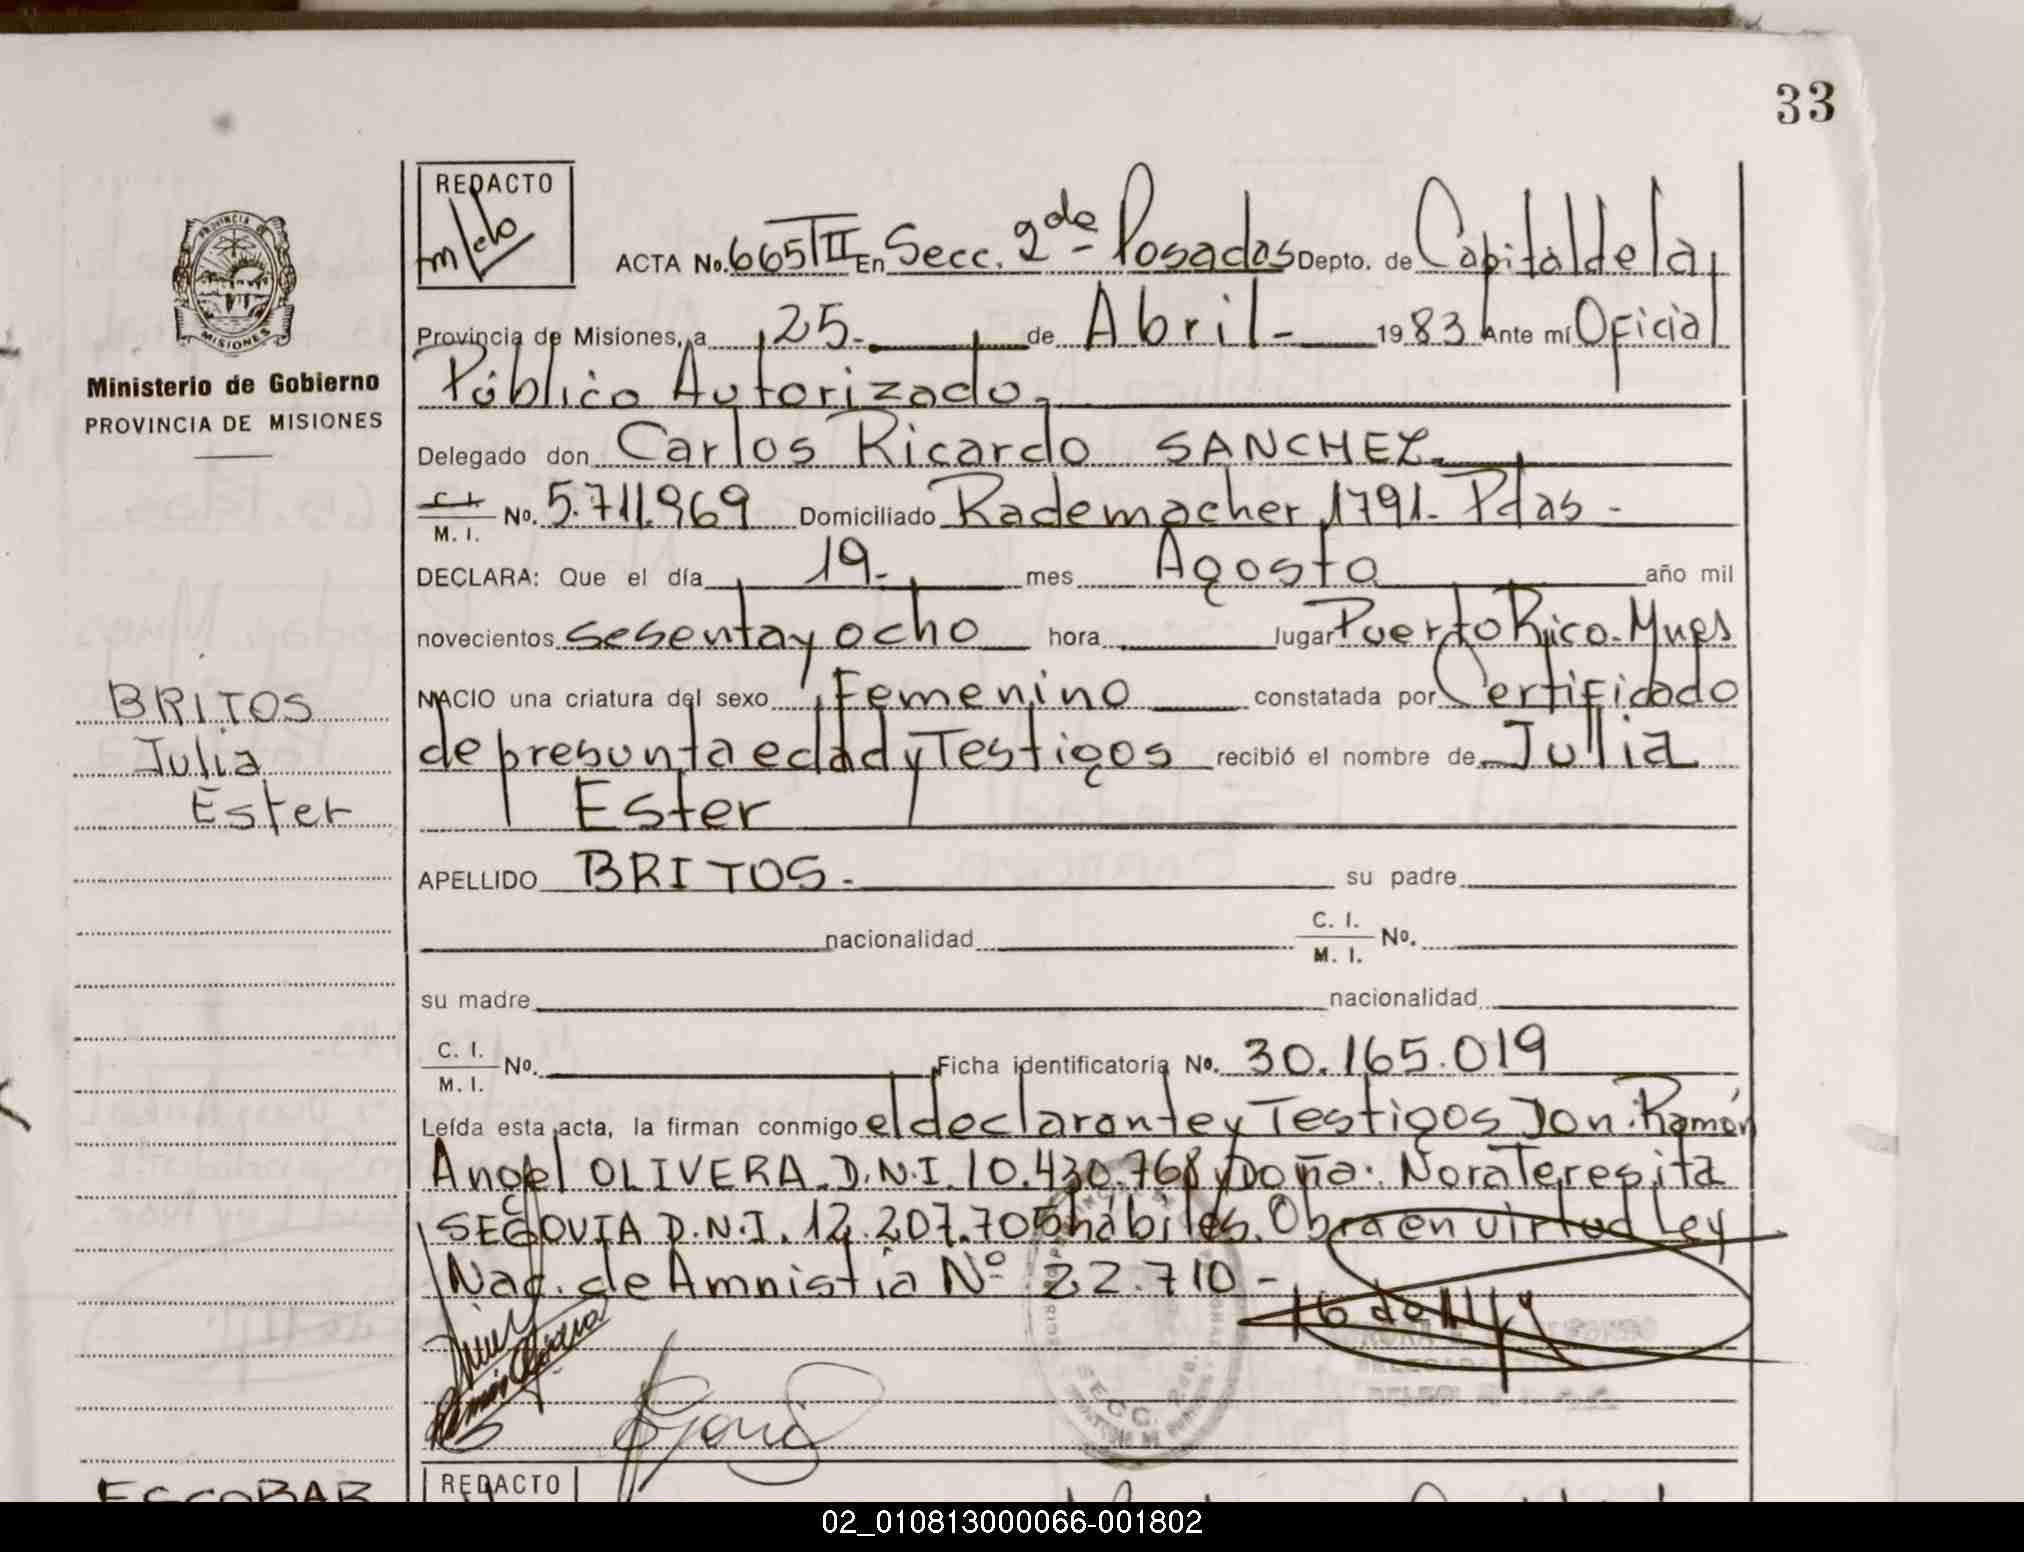 33
REDACTO
Melo
ACTA No. 665 TII En Secc. 2da - Posadas Depto. de Capital de la
Provincia de Misiones, a 25.- de Abril - 1983 Ante mí Oficial
Público Autorizado.-
Delegado don Carlos Ricardo SANCHEZ.
C. I. / M. I. No. 5.711.969 Domiciliado Rademacher 1791. Pdas -
DECLARA: Que el día 19.- mes Agosto año mil
novecientos sesenta y ocho hora lugar Puerto Rico. Mnes
NACIO una criatura del sexo Femenino constatada por Certificado
de presunta edad y Testigos recibió el nombre de Julia
Ester
APELLIDO BRITOS.- su padre
nacionalidad C. I. / M. I. No.
su madre nacionalidad
C. I. / M. I. No. Ficha identificatoria No. 30.165.019
Leída esta acta, la firman conmigo el declarante y Testigos Don: Ramón
Angel OLIVERA. D.N.I. 10.430.768 y Doña: Nora Teresita
SEGOVIA D.N.I. 12.207.705 hábiles. Obra en virtud Ley
Nac. de Amnistía Nº 22.710 -
SECC. 2da.
REDACTO
PROVINCIA DE
MISIONES
Ministerio de Gobierno
PROVINCIA DE MISIONES
BRITOS
Julia
Ester
ESCOBAR
02_010813000066-001802